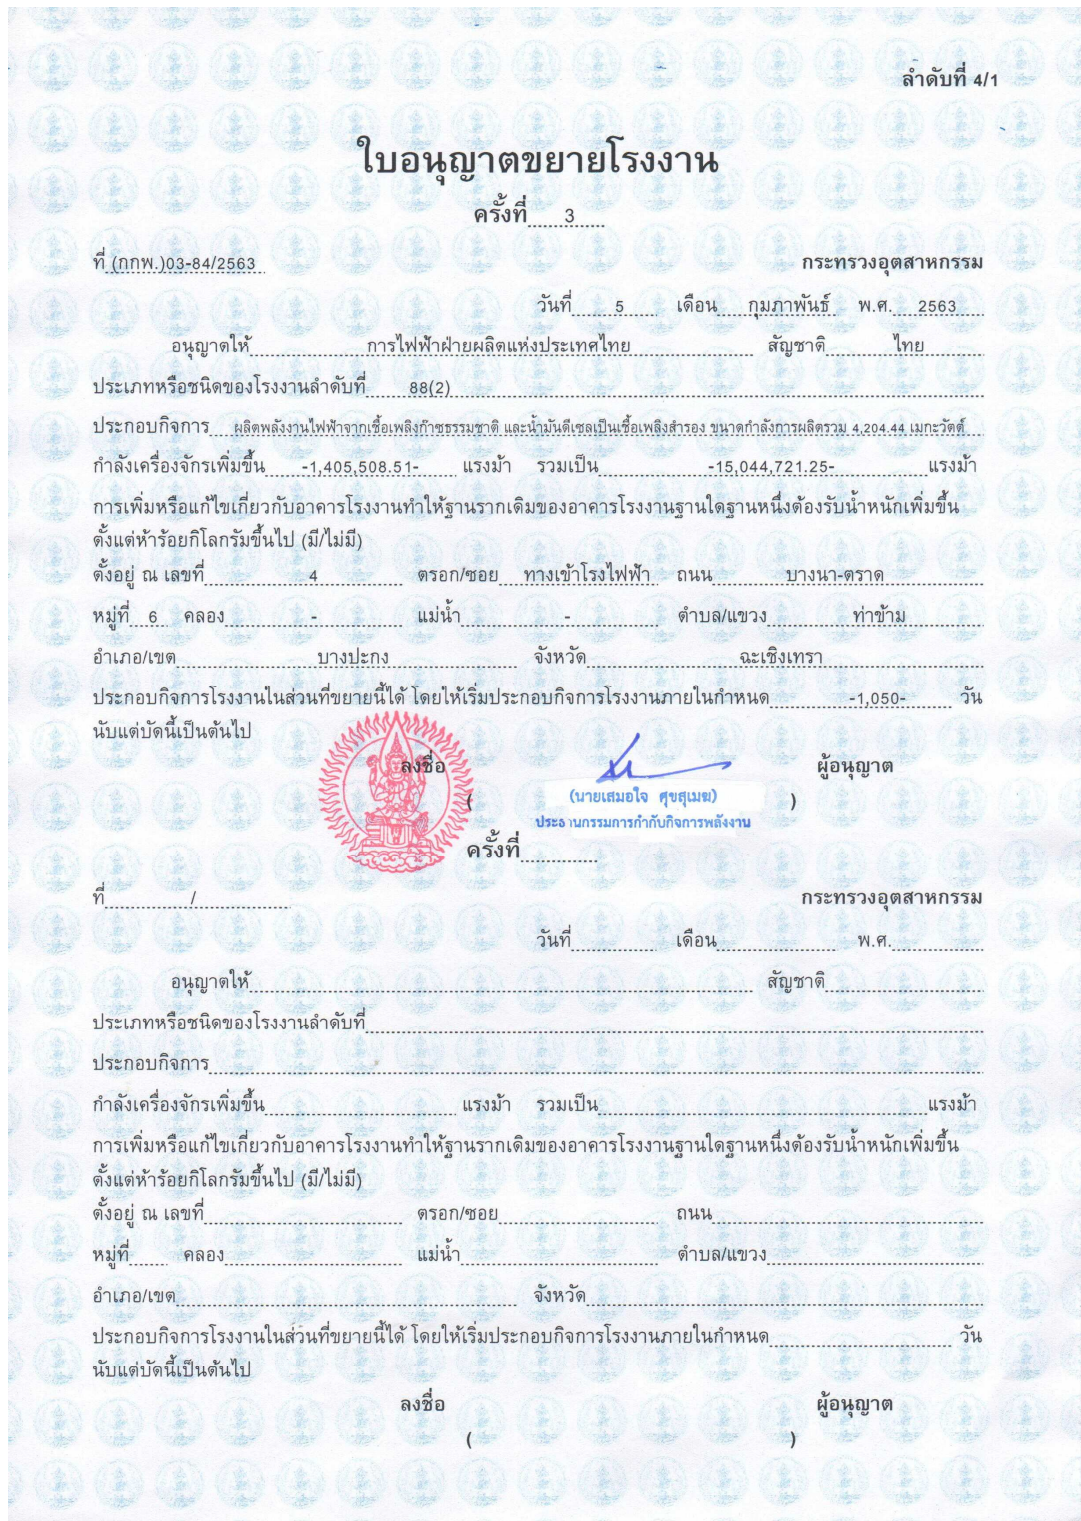 ลำดับที่ 4/1
ใบอนุญาตขยายโรงงาน
ครั้งที่ 3
ที่ (กกพ.)03-84/2563 กระทรวงอุตสาหกรรม
วันที่ 5 เดือน กุมภาพันธ์ พ.ศ. 2563
อนุญาตให้ การไฟฟ้าฝ่ายผลิตแห่งประเทศไทย สัญชาติ ไทย
ประเภทหรือชนิดของโรงงานลำดับที่ 88(2)
ประกอบกิจการ ผลิตพลังงานไฟฟ้าจากเชื้อเพลิงก๊าซธรรมชาติ และน้ำมันดีเซลเป็นเชื้อเพลิงสำรอง ขนาดกำลังการผลิตรวม 4,204.44 เมกะวัตต์
กำลังเครื่องจักรเพิ่มขึ้น -1,405,508.51- แรงม้า รวมเป็น -15,044,721.25- แรงม้า
การเพิ่มหรือแก้ไขเกี่ยวกับอาคารโรงงานทำให้ฐานรากเดิมของอาคารโรงงานฐานใดฐานหนึ่งต้องรับน้ำหนักเพิ่มขึ้น
ตั้งแต่ห้าร้อยกิโลกรัมขึ้นไป (มี/ไม่มี)
ตั้งอยู่ ณ เลขที่ 4 ตรอก/ซอย ทางเข้าโรงไฟฟ้า ถนน บางนา-ตราด
หมู่ที่ 6 คลอง - แม่น้ำ - ตำบล/แขวง ท่าข้าม
อำเภอ/เขต บางปะกง จังหวัด ฉะเชิงเทรา
ประกอบกิจการโรงงานในส่วนที่ขยายนี้ได้ โดยให้เริ่มประกอบกิจการโรงงานภายในกำหนด -1,050- วัน
นับแต่บัดนี้เป็นต้นไป
ลงชื่อ ผู้อนุญาต
(นายเสมอใจ ศุขสุเมฆ)
( )
ประธานกรรมการกำกับกิจการพลังงาน
ครั้งที่
ที่ / กระทรวงอุตสาหกรรม
วันที่ เดือน พ.ศ.
อนุญาตให้ สัญชาติ
ประเภทหรือชนิดของโรงงานลำดับที่
ประกอบกิจการ
กำลังเครื่องจักรเพิ่มขึ้น แรงม้า รวมเป็น แรงม้า
การเพิ่มหรือแก้ไขเกี่ยวกับอาคารโรงงานทำให้ฐานรากเดิมของอาคารโรงงานฐานใดฐานหนึ่งต้องรับน้ำหนักเพิ่มขึ้น
ตั้งแต่ห้าร้อยกิโลกรัมขึ้นไป (มี/ไม่มี)
ตั้งอยู่ ณ เลขที่ ตรอก/ซอย ถนน
หมู่ที่ คลอง แม่น้ำ ตำบล/แขวง
อำเภอ/เขต จังหวัด
ประกอบกิจการโรงงานในส่วนที่ขยายนี้ได้ โดยให้เริ่มประกอบกิจการโรงงานภายในกำหนด วัน
นับแต่บัดนี้เป็นต้นไป
ลงชื่อ ผู้อนุญาต
( )